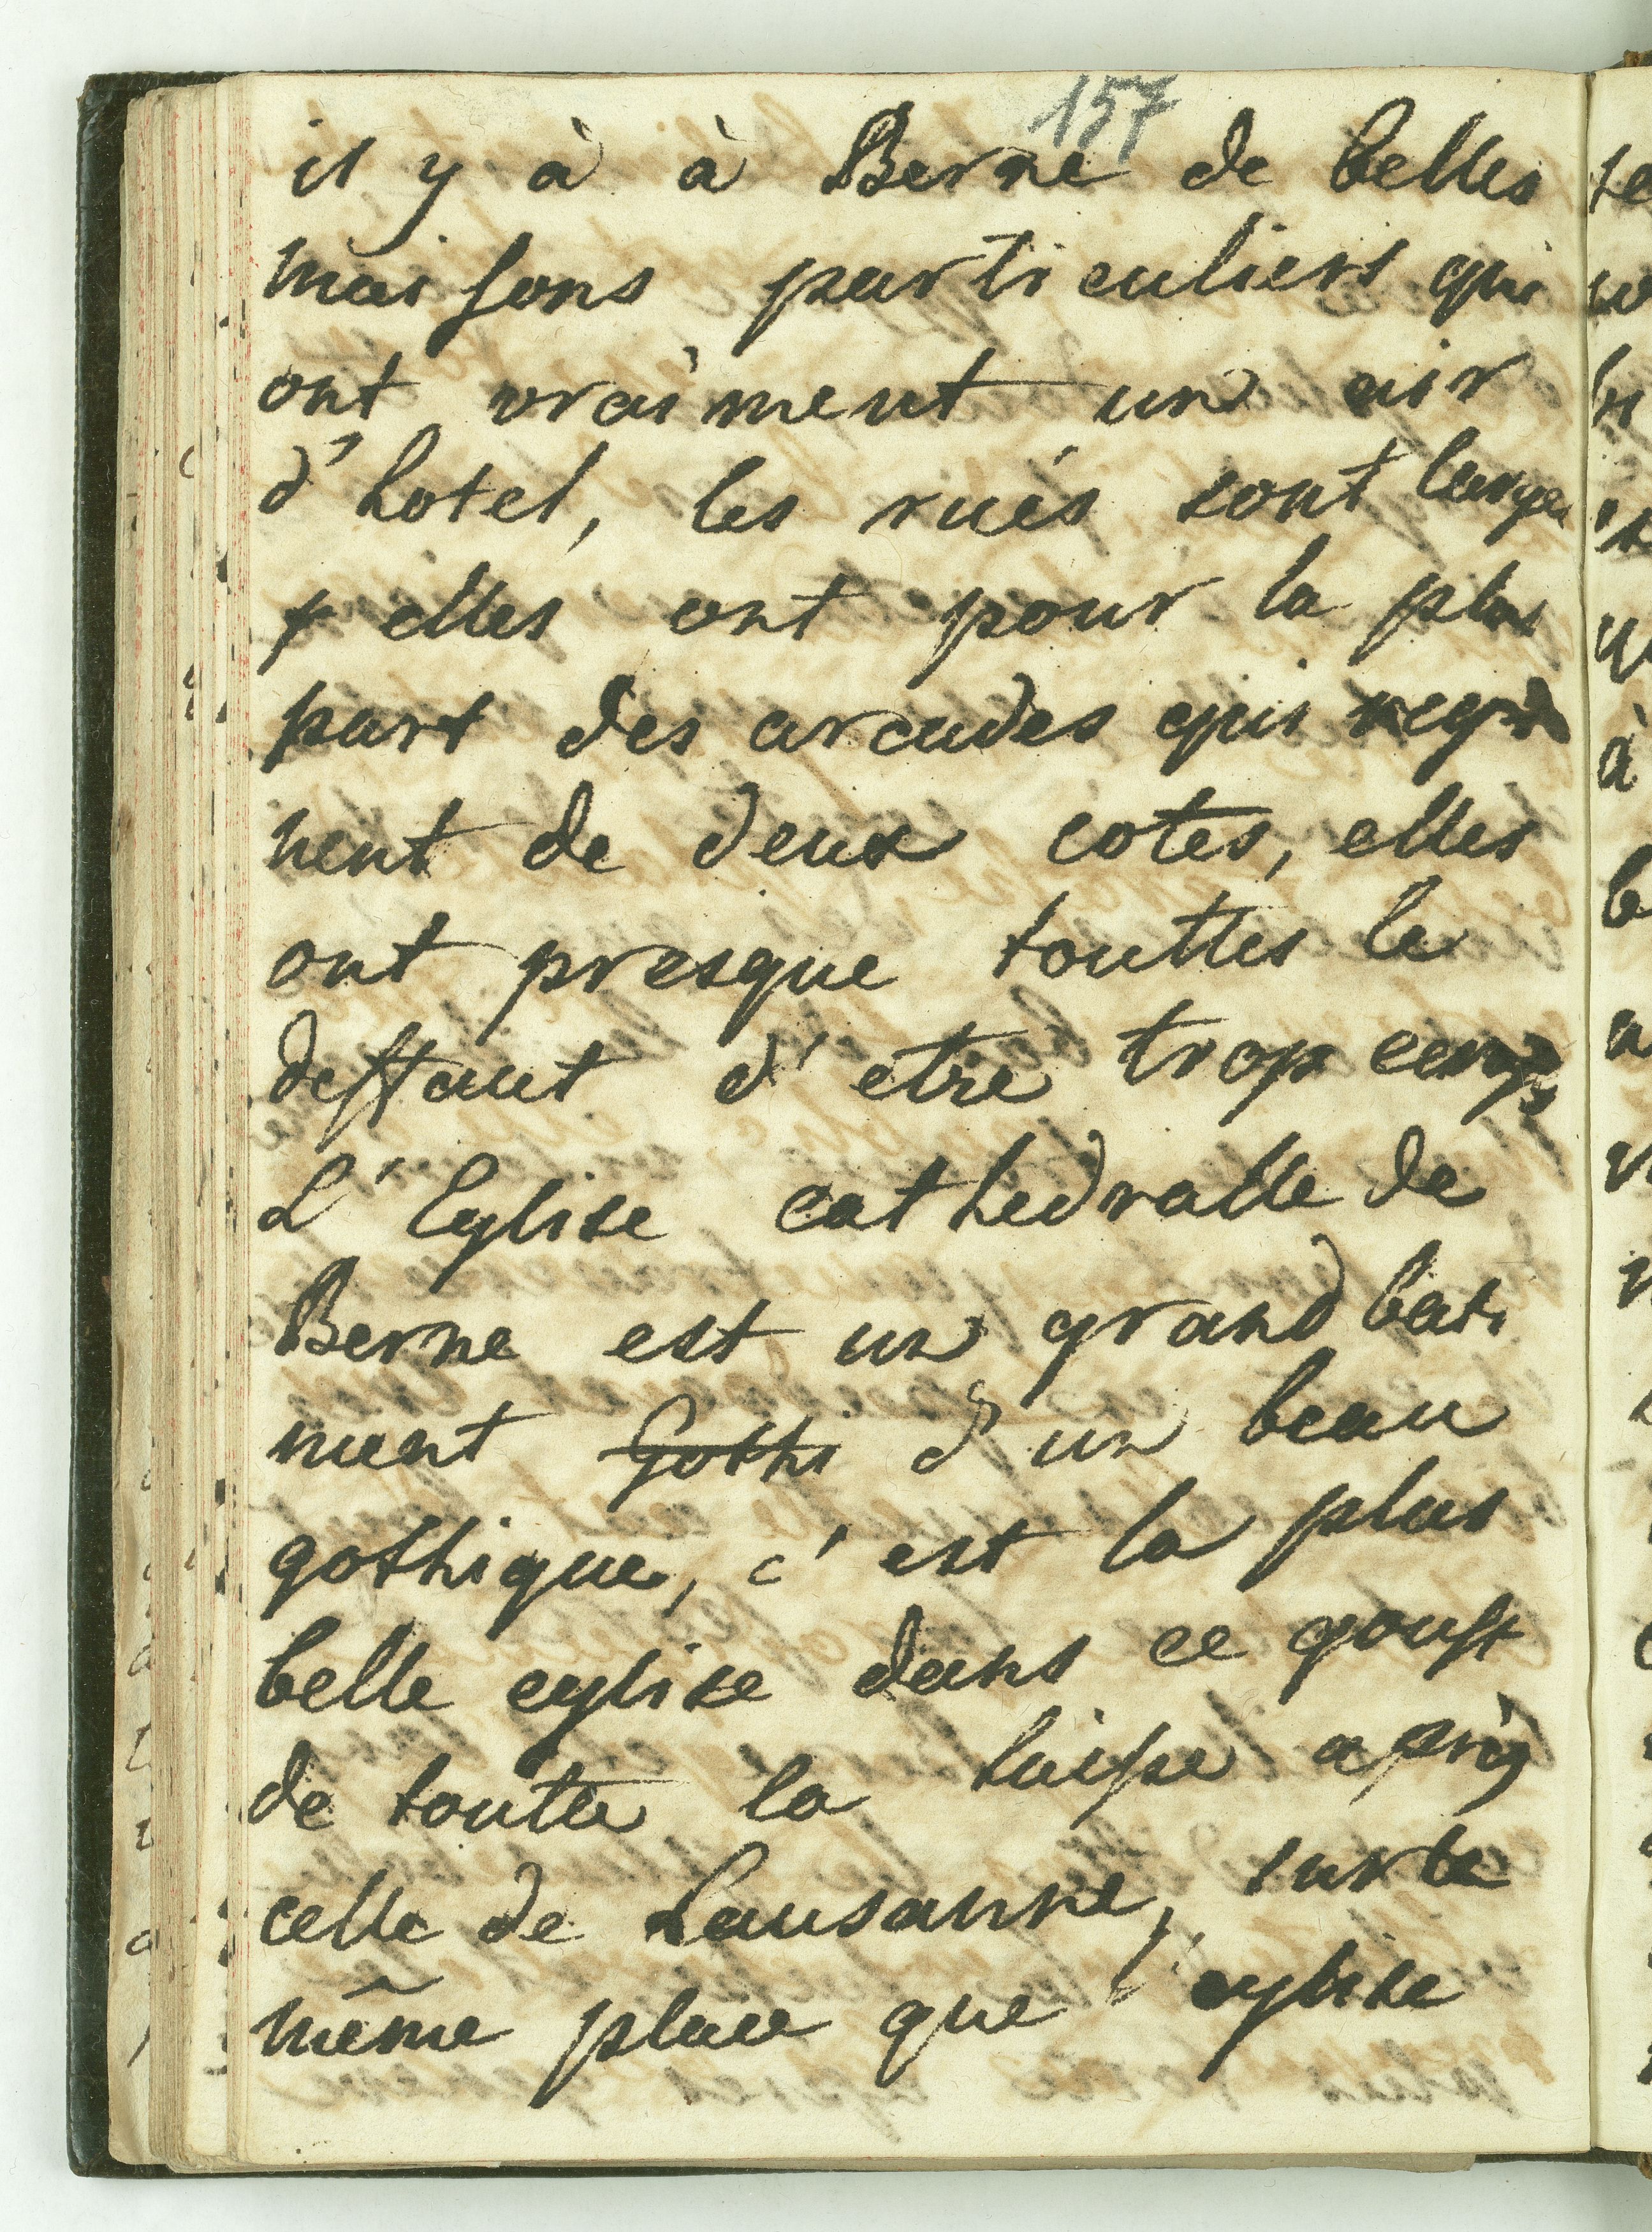 157
il y à à Berne de belles
maisons particuliers qui
ont vraiment un air
d'hotel, les rués sont larges
& elles ont pour la plus
part des arcades qui regn
nent de deux cotes, elles
ont presque touttes le
deffaut d'etre trop
L'Eglise cathedralle de
Berne est un grand bati
ment Gothi d'un beau
gothique, c'est la plus
belle eglise dans ce goust
de toutte la suisse après
celle de Lausanne, sur la
même place que l'eglise